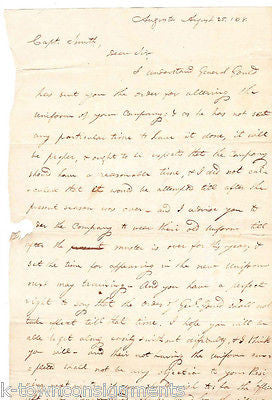 Augusta August 28. 18
Capt. Smith,
Dear Sir
I understand General Gould
has sent you the order for altering the
uniforms of your Company; & as he has not set
any particular time to have it done, it will
be proper, & ought to be expected that the Company
should have a reasonable time, & I did not cal-
culate that it would be attempted till after the
present season was over - and I advise you to
order the Company to wear their old uniform till
after the muster is over for the year, &
set the time for appearing in the new Uniform
next may training - And you have a perfect
right to say that the order of Genl Gould shall not
take effect till that time. I hope you will be
able to get along easily without difficulty, & I think
you will - and their not having the uniform
will not be any objection to your
to be the
k-townconsignments